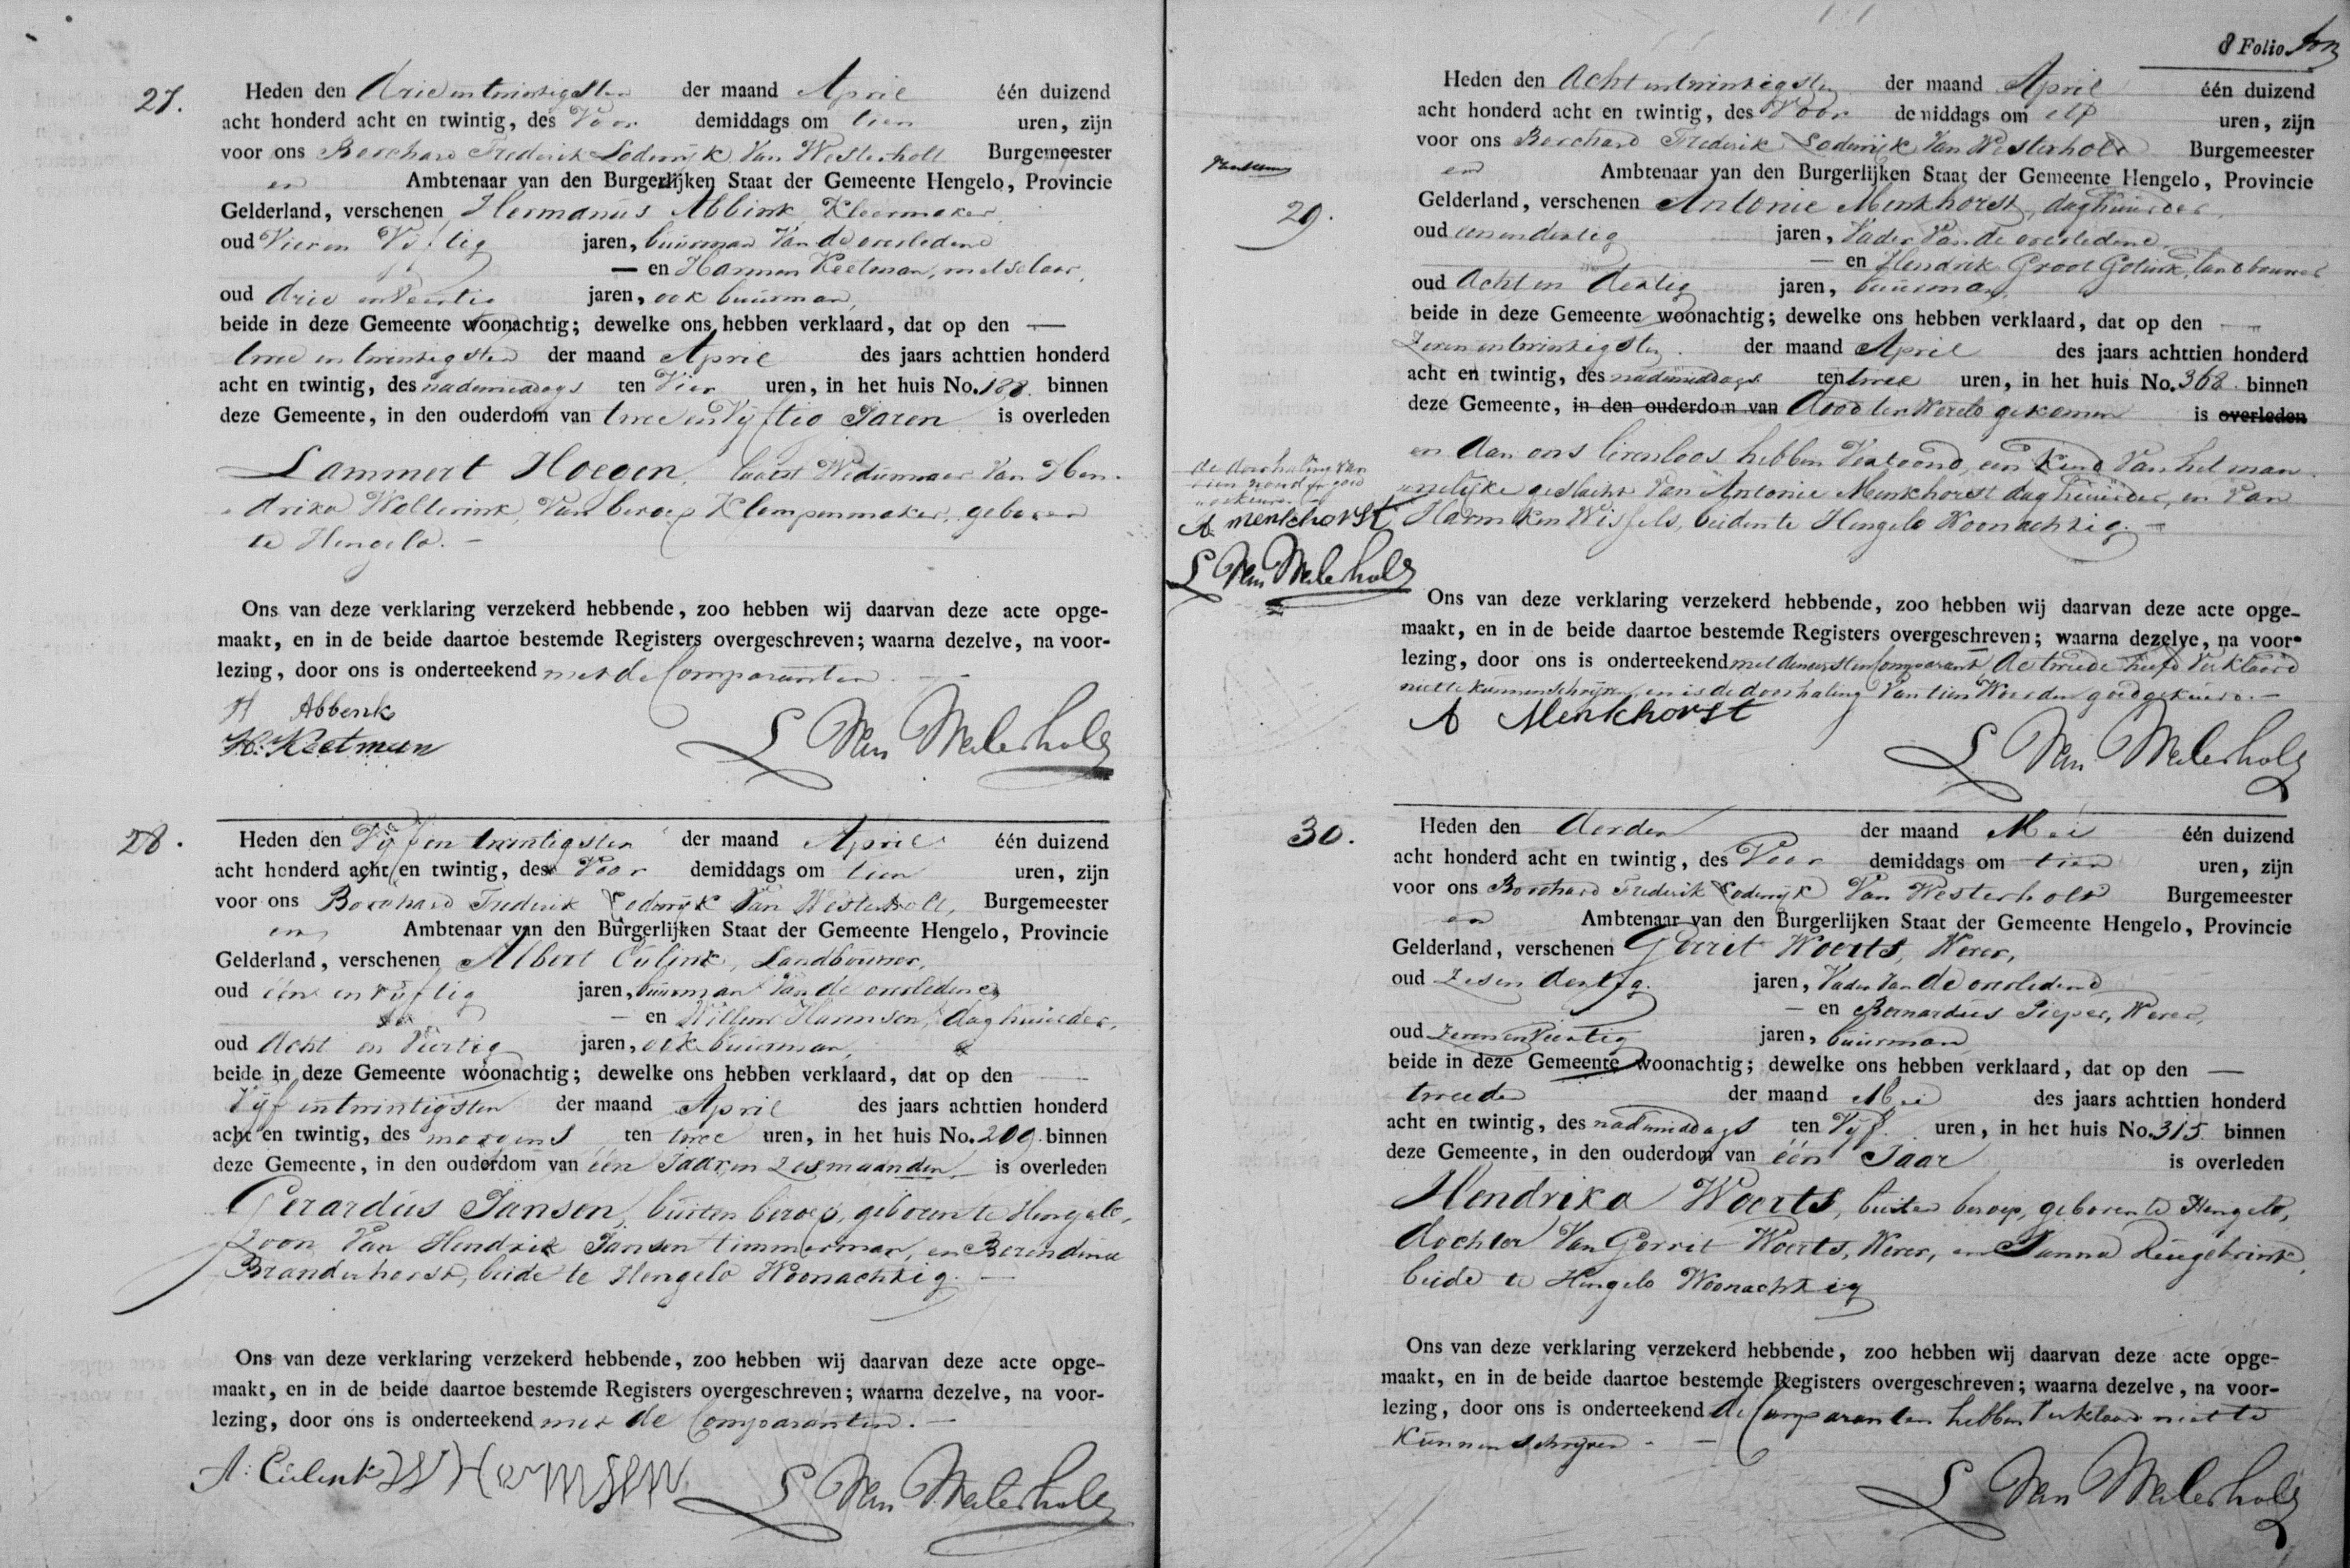 27.
Heden den drie en twintigsten der maand April één duizend
acht honderd acht en twintig, des Voor demiddags om tien uren, zijn
voor ons Borchard Frederik Lodewijk Van Westerholt Burgemeester
en Ambtenaar van den Burgerlijken Staat der Gemeente Hengelo, Provincie
Gelderland, verschenen Hermanus Abbink, Kleermaker,
oud Vier en Vijftig jaren, buurman Van de overledene
— en Harmen Keetman, metselaar,
oud drie en Veertig jaren, ook buurman,
beide in deze Gemeente woonachtig; dewelke ons hebben verklaard, dat op den —
twee en twintigsten der maand April des jaars achttien honderd
acht en twintig, des nademiddags ten Vier uren, in het huis No. 188. binnen
deze Gemeente, in den ouderdom van twee en Vijftig Jaren is overleden
Lammert Hoegen, laatst Weduwnaar Van Hen-
drika Wolterink, Van beroep Klompenmaker, geboren
te Hengelo. —
Ons van deze verklaring verzekerd hebbende, zoo hebben wij daarvan deze acte opge-
maakt, en in de beide daartoe bestemde Registers overgeschreven; waarna dezelve, na voor-
lezing, door ons is onderteekend met de Comparanten. —
H Abbenk
H. Keetman
L Van Westerholt
28.
Heden den Vijf en twintigsten der maand April één duizend
acht honderd acht en twintig, des Voor demiddags om tien uren, zijn
voor ons Borchard Frederik Lodewijk Van Westerholt, Burgemeester
en Ambtenaar van den Burgerlijken Staat der Gemeente Hengelo, Provincie
Gelderland, verschenen Albert Eulink, Landbouwer,
oud één en vijftig jaren, buurman Van de overledene
— en Willem Harmsen, daghuurder,
oud Acht en Veertig jaren, ook buurman,
beide in deze Gemeente woonachtig; dewelke ons hebben verklaard, dat op den —
Vijf en twintigsten der maand April des jaars achttien honderd
acht en twintig, des morgens ten twee uren, in het huis No. 209. binnen
deze Gemeente, in den ouderdom van één Jaar en Zes maanden is overleden
Gerardus Jansen, buiten beroep, geboren te Hengelo,
Zoon Van Hendrik Jansen timmerman, en Berendina
Branderhorst, beide te Hengelo Woonachtig. —
Ons van deze verklaring verzekerd hebbende, zoo hebben wij daarvan deze acte opge-
maakt, en in de beide daartoe bestemde Registers overgeschreven; waarna dezelve, na voor-
lezing, door ons is onderteekend met de Comparanten. —
A: Eulink W Harmsen
L Van Westerholt
8 Folio
29.
Heden den Acht en twintigsten der maand April één duizend
acht honderd acht en twintig, des Voor demiddags om elf uren, zijn
voor ons Borchard Frederik Lodewijk Van Westerholt Burgemeester
en Ambtenaar van den Burgerlijken Staat der Gemeente Hengelo, Provincie
Gelderland, verschenen Antonie Menkhorst, daghuurder,
oud een en dertig jaren, Vader Van de overledene,
— en Hendrik Groot Golink, landbouwer
oud Acht en dertig jaren, buurman,
beide in deze Gemeente woonachtig; dewelke ons hebben verklaard, dat op den —
Zeven en twintigsten der maand April des jaars achttien honderd
acht en twintig, des nademiddags ten twee uren, in het huis No. 368. binnen
deze Gemeente, in den ouderdom van dood ter Wereld gekomen is overleden
en Aan ons levenloos hebben Vertoond, een Kind Van het man-
nelijke geslacht Van Antonie Menkhorst daghuurder, en Van
Harmken Wissels, beiden te Hengelo Woonachtig. —
de doorhaling van
tien woorden goed
gekeurd
A menkhorst
L Van Westerholt
Ons van deze verklaring verzekerd hebbende, zoo hebben wij daarvan deze acte opge-
maakt, en in de beide daartoe bestemde Registers overgeschreven; waarna dezelve, na voor-
lezing, door ons is onderteekend met den eersten Comparant de tweede heeft Verklaard
niet te kunnen schrijven, en is de doorhaling Van tien Woorden goedgekeurd. —
A Menkhorst
L Van Westerholt
30.
Heden den derden der maand Mei één duizend
acht honderd acht en twintig, des Voor demiddags om tien uren, zijn
voor ons Borchard Frederik Lodewijk Van Westerholt Burgemeester
en Ambtenaar van den Burgerlijken Staat der Gemeente Hengelo, Provincie
Gelderland, verschenen Gerrit Woerts, Wever,
oud Zes en dertig jaren, Vader Van de overledene
— en Bernardus Pieper, Wever,
oud Zeven en Veertig jaren, buurman
beide in deze Gemeente woonachtig; dewelke ons hebben verklaard, dat op den —
tweeden der maand Mei des jaars achttien honderd
acht en twintig, des nademiddags ten Vijf uren, in het huis No. 315 binnen
deze Gemeente, in den ouderdom van één Jaar is overleden
Hendrika Woerts, buiten beroep, geboren te Hengelo,
dochter Van Gerrit Woerts, Wever, en Janna Reugebrink,
beide te Hengelo Woonachtig
Ons van deze verklaring verzekerd hebbende, zoo hebben wij daarvan deze acte opge-
maakt, en in de beide daartoe bestemde Registers overgeschreven; waarna dezelve, na voor-
lezing, door ons is onderteekend de Comparanten hebben Verklaard niet te
Kunnen schrijven. —
L Van Westerholt